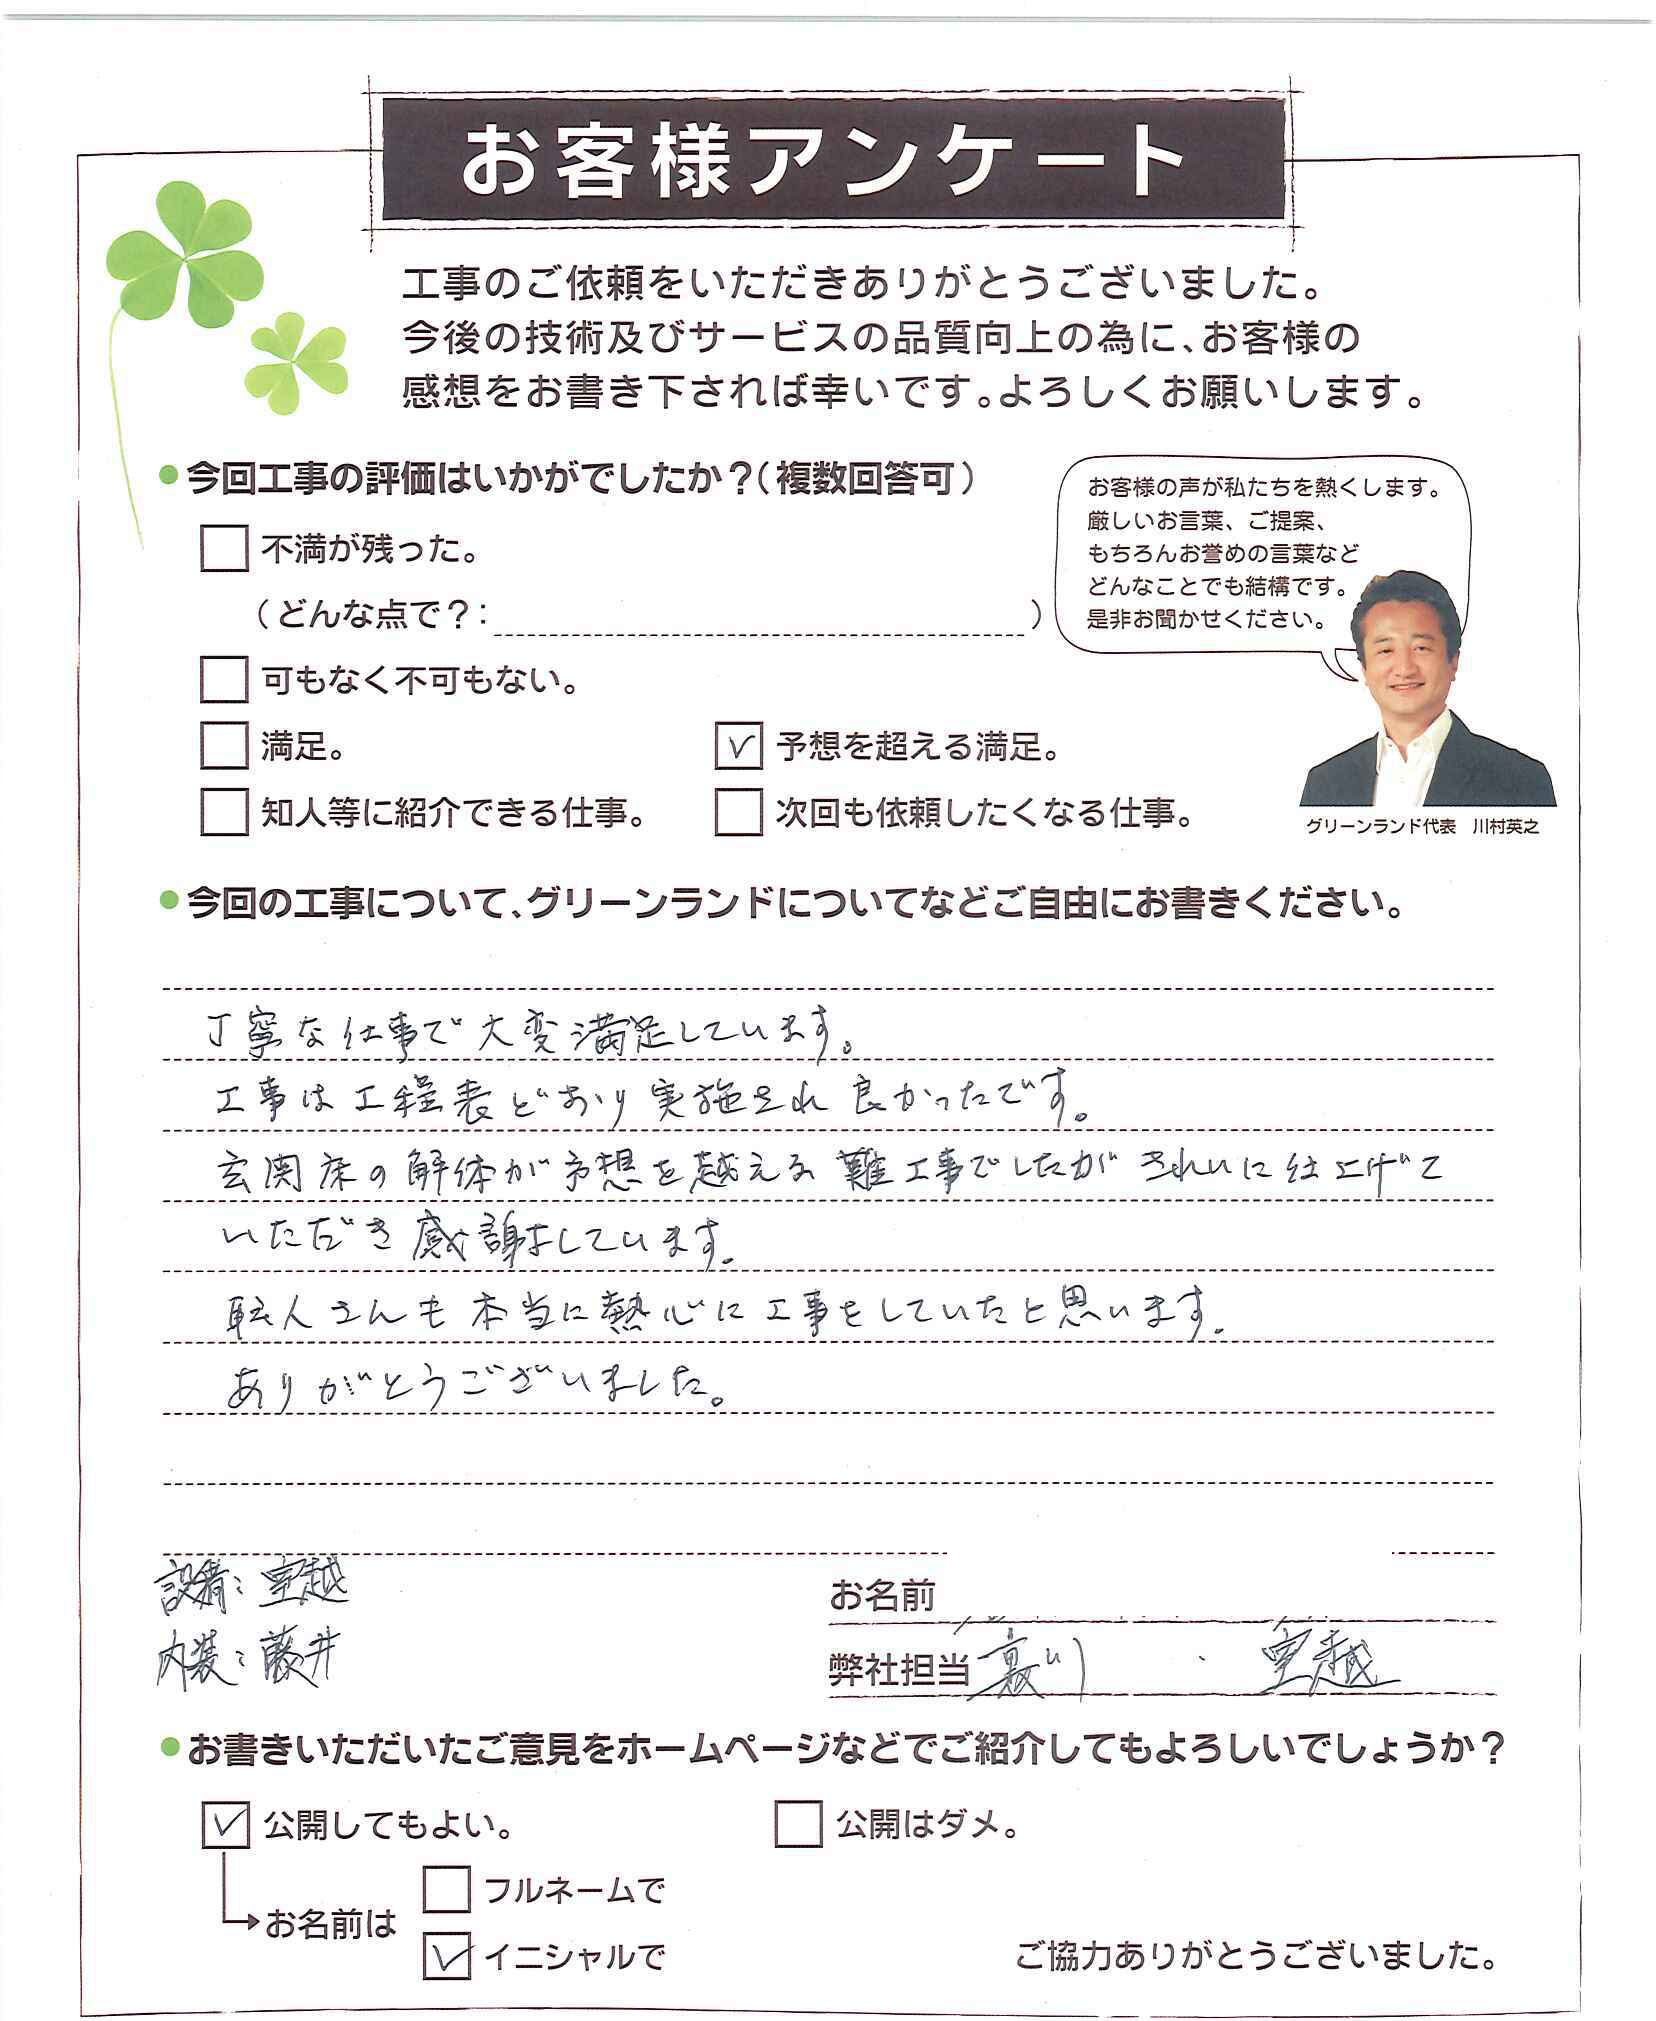 お客様アンケート
工事のご依頼をいただきありがとうございました。
今後の技術及びサービスの品質向上の為に、お客様の
感想をお書き下されば幸いです。よろしくお願いします。
●今回工事の評価はいかがでしたか？（複数回答可）
不満が残った。
（どんな点で？： ）
可もなく不可もない。
満足。
予想を超える満足。
知人等に紹介できる仕事。
次回も依頼したくなる仕事。
お客様の声が私たちを熱くします。
厳しいお言葉、ご提案、
もちろんお誉めの言葉など
どんなことでも結構です。
是非お聞かせください。
グリーンランド代表　川村英之
●今回の工事について、グリーンランドについてなどご自由にお書きください。
丁寧な仕事で大変満足しています。
工事は工程表どおり実施され良かったです。
玄関床の解体が予想を越える難工事でしたがきれいに仕上げて
いただき感謝しています。
職人さんも本当に熱心に工事をしていたと思います。
ありがとうございました。
設備：室越
内装：藤井
お名前
弊社担当 川・室越
●お書きいただいたご意見をホームページなどでご紹介してもよろしいでしょうか？
公開してもよい。
公開はダメ。
お名前は
フルネームで
イニシャルで
ご協力ありがとうございました。